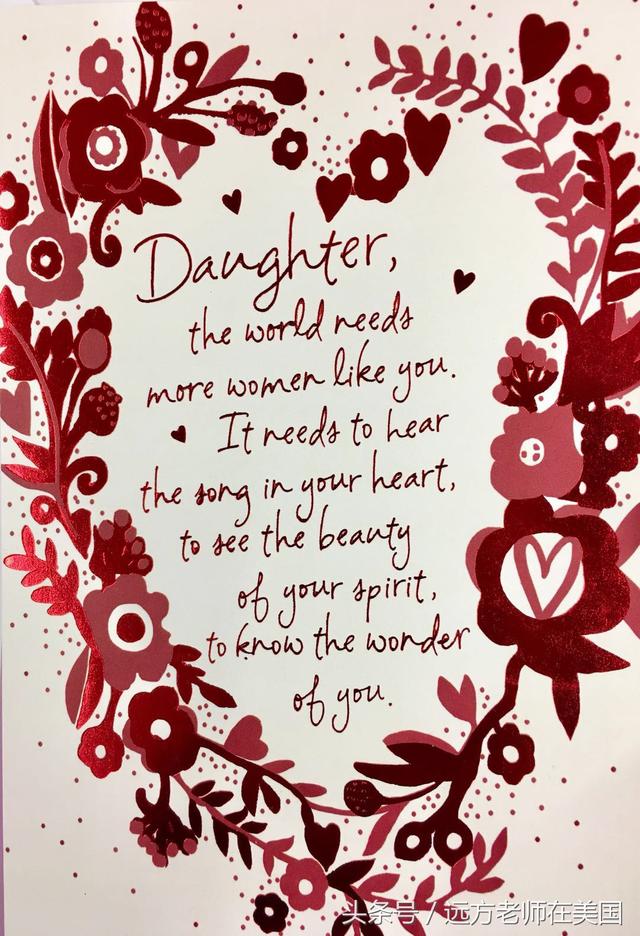 Daughter,
the world needs
more women like you.
It needs to hear
the song in your heart,
to see the beauty
of your spirit,
to know the wonder
of you.
头条号/远方老师在美国